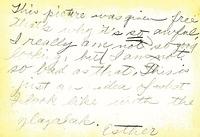 This picture was given free
that's why it's so awful
I really am not
but I am not
so bad as that. This is
just an idea of what
I look like with the
Esther